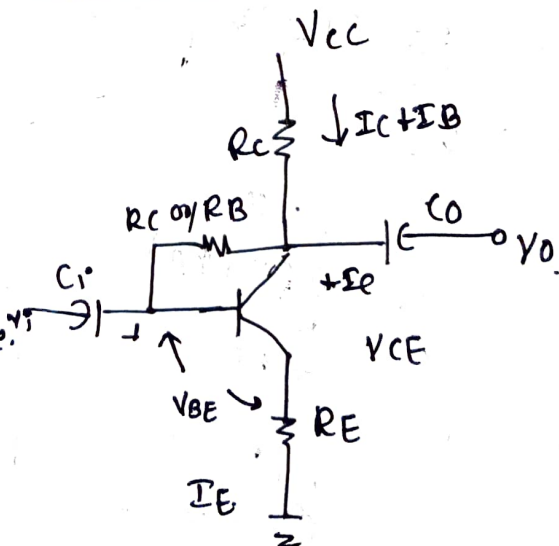 VCC
RC
↓ IC + IB
RC or/ RB
CO
VO.
Ci
+IC
Vi
+
VCE
VBE
RE
IE